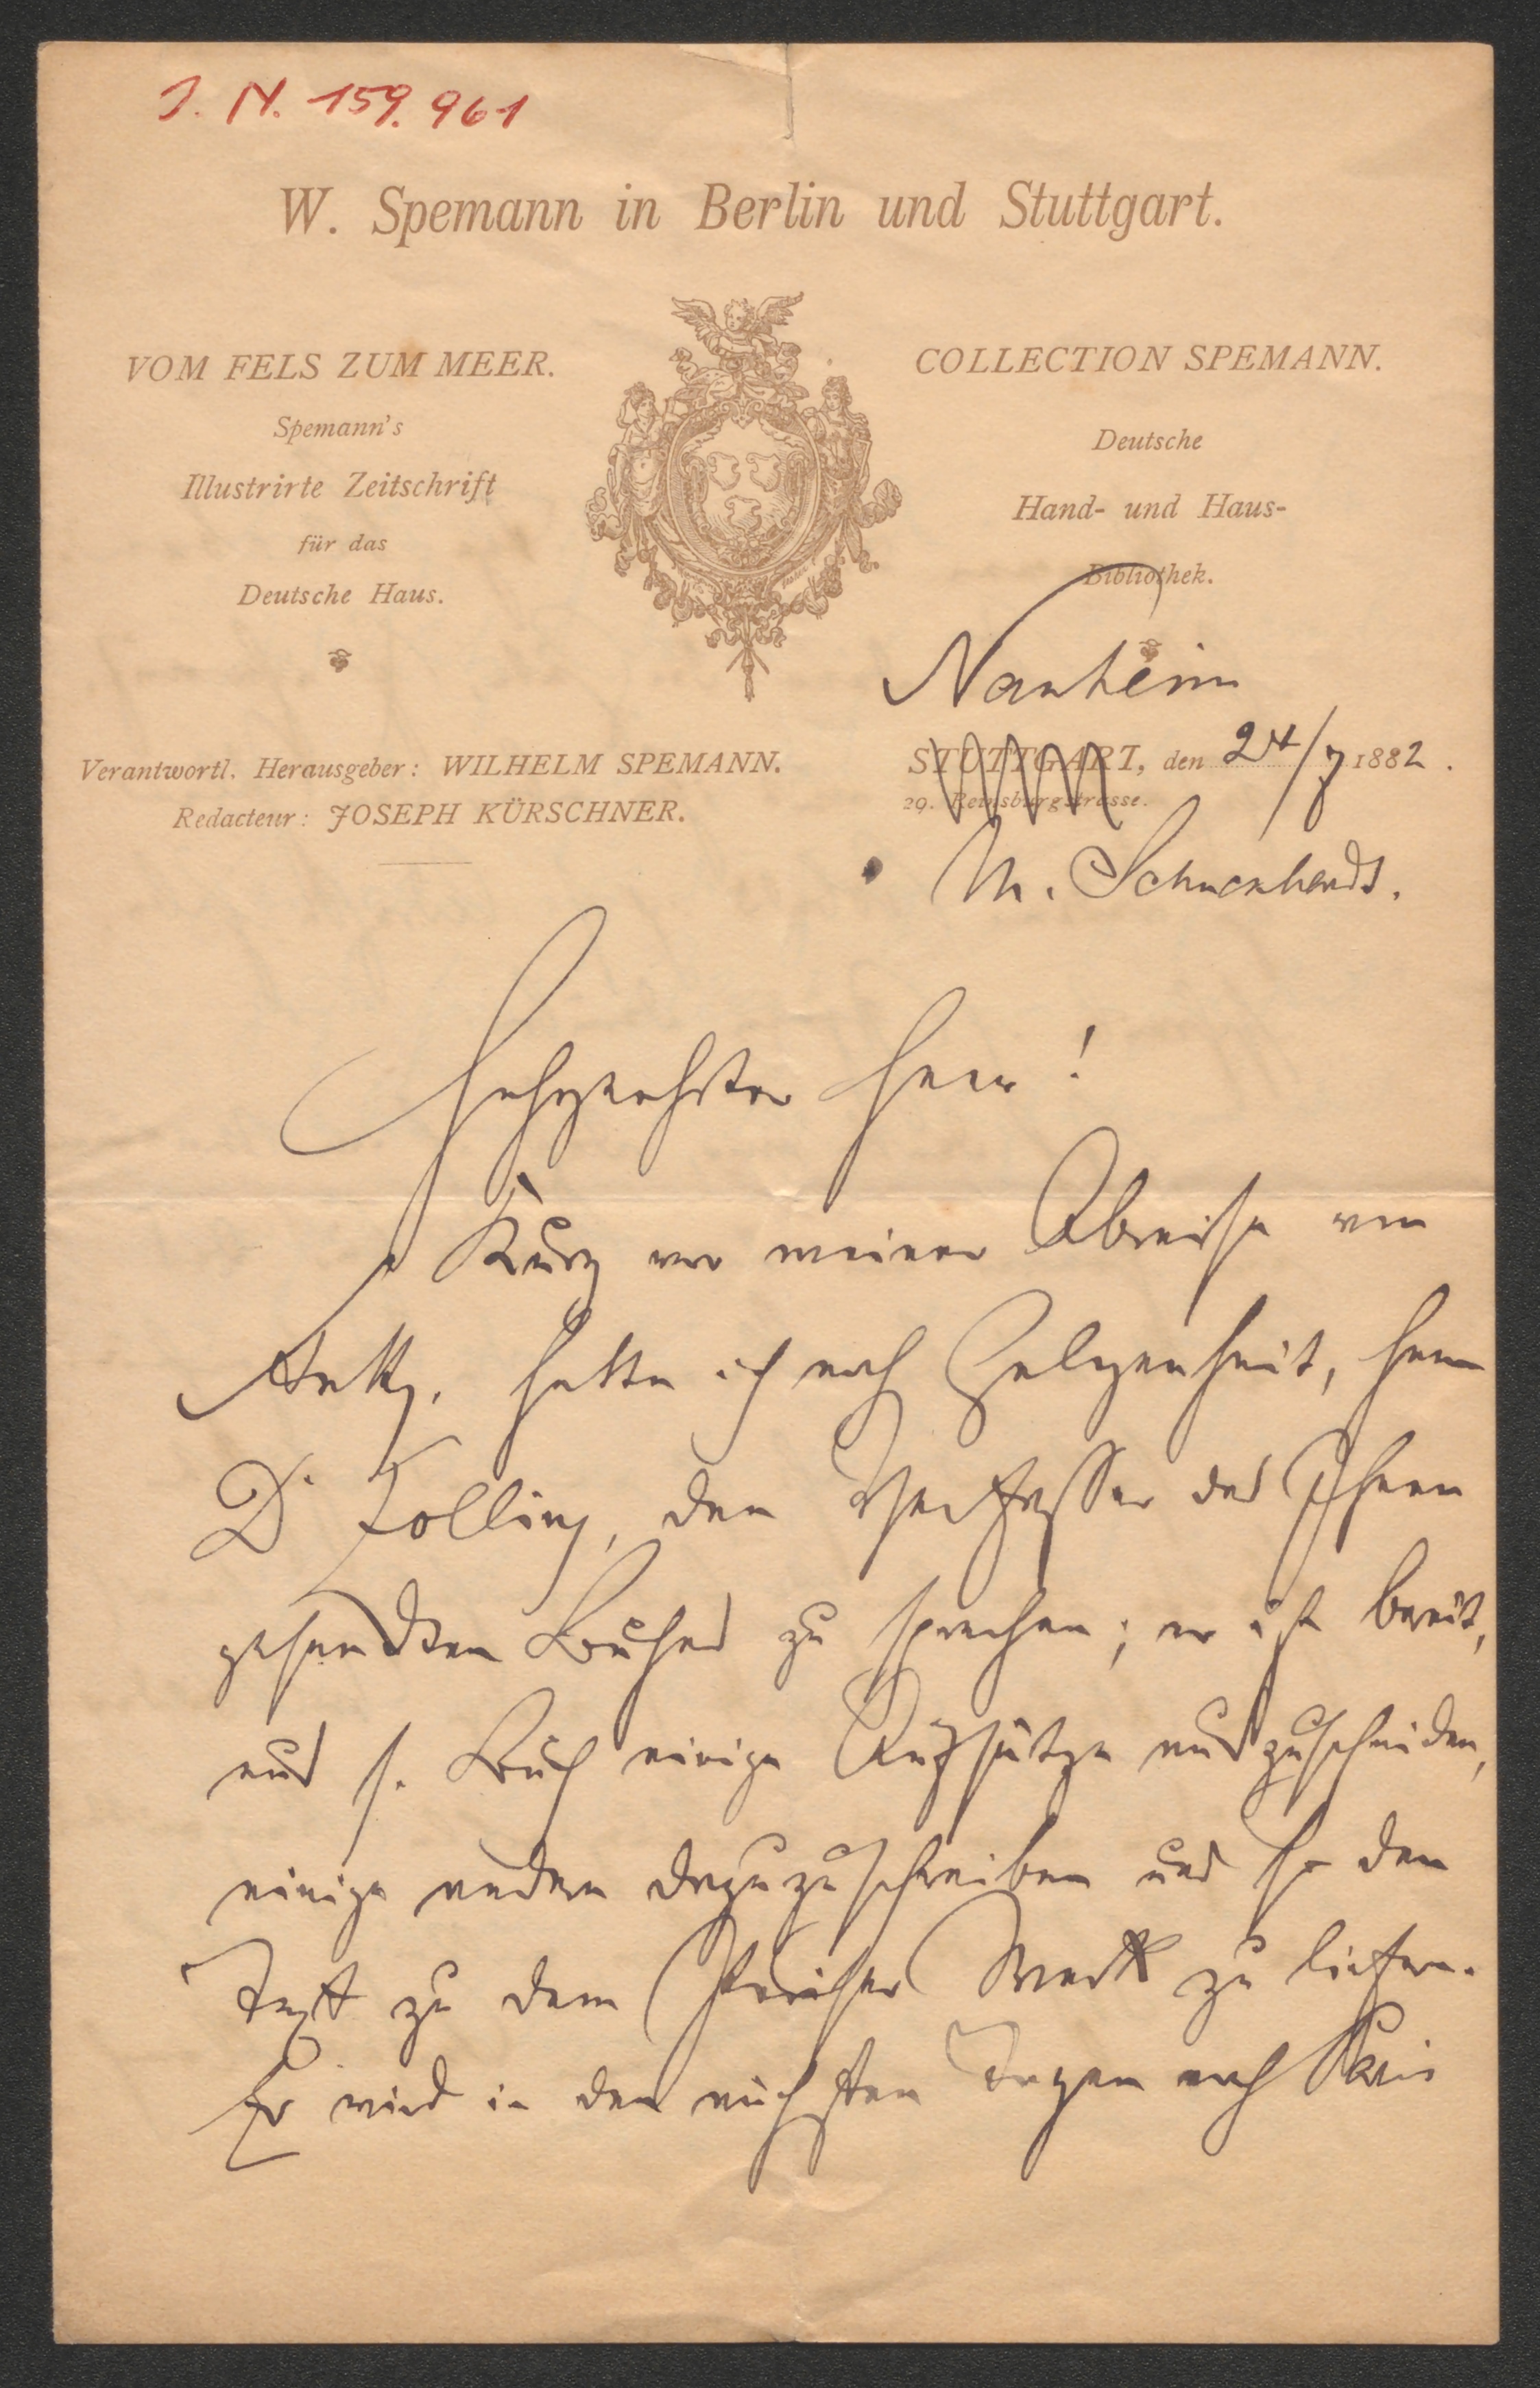 J. N. 159.961
W. Spemann in Berlin und Stuttgart.
VOM FELS ZUM MEER.
Spemann's
Illustrirte Zeitschrift
für das
Deutsche Haus.
COLLECTION SPEMANN.
Deutsche
Hand- und Haus-
Bibliothek.
Verantwortl. Herausgeber: WILHELM SPEMANN.
Redacteur: JOSEPH KÜRSCHNER.
Nauheim
STUTTGART, den 24/7 1882.
29. Reinsburgstrasse.
Hochgeehrter Herr!
Kurz vor meiner Abreise von
Stuttg. hatte ich noch Gelegenheit, Herrn
Dr Zolling, den Verfasser des Ihnen
gesandten Buches zu sprechen; er ist bereit,
aus s. Buch einige Aufsätze auszuscheiden,
einige andere dazuzuschreiben und so den
Text zu dem Pariser Werk zu liefern.
Er wird in den nächsten Tagen nach Paris